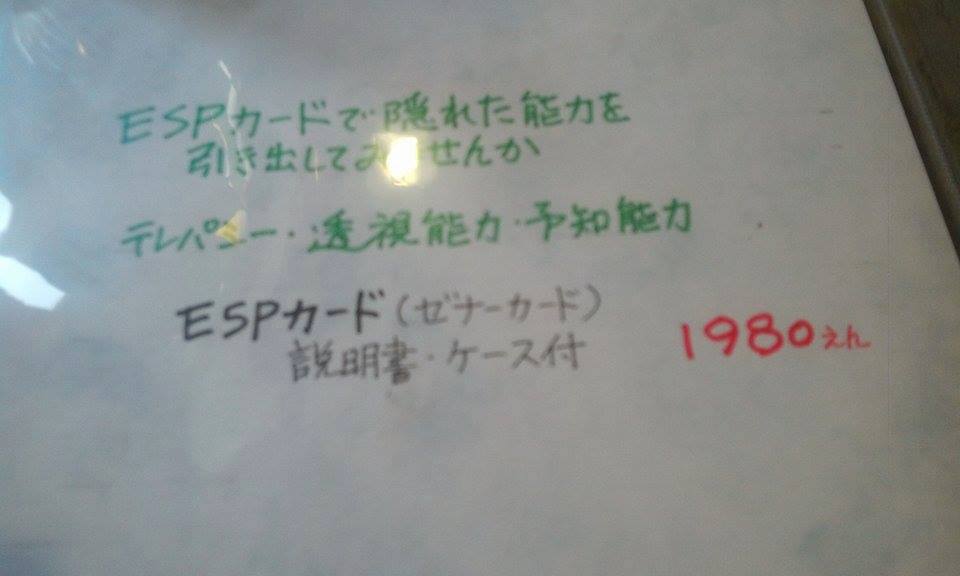 ESPカードで隠れた能力を
引き出してみませんか
テレパシー・透視能力・予知能力
ESPカード(ゼナーカード)
説明書・ケース付
1980えん